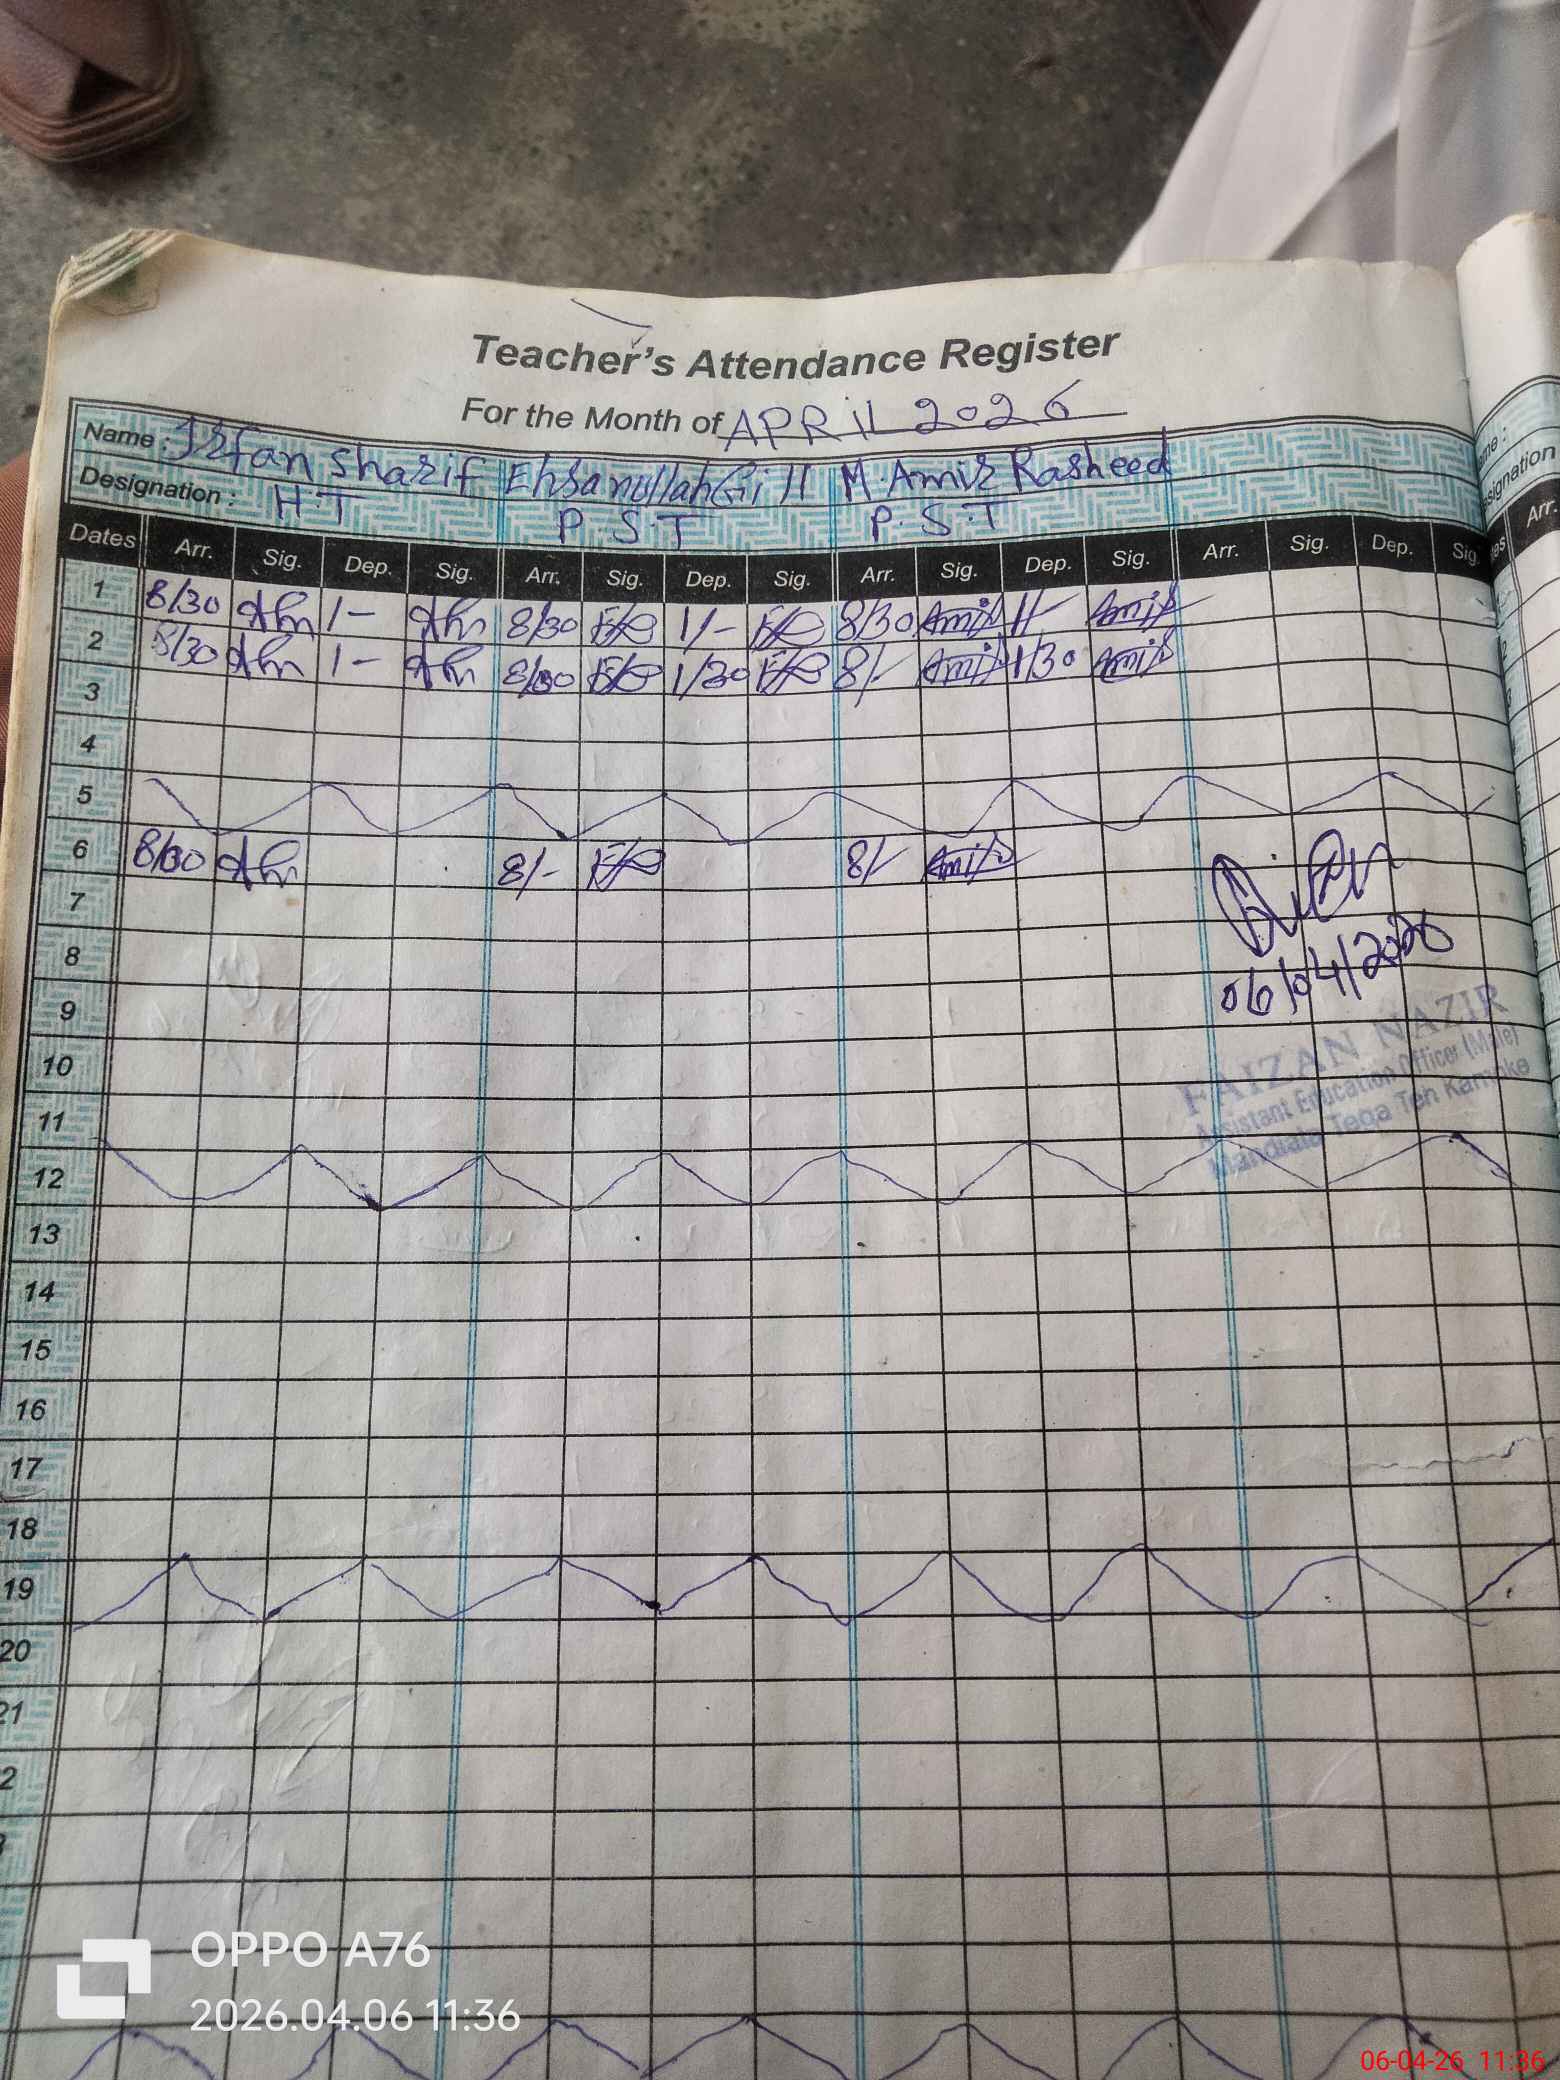 Teacher's Attendance Register
For the Month of APRIL 2026
Name : Irfan Sharif Ehsanullah Gill M. Amir Rasheed
Designation : H.T P.S.T P.S.T
Dates Arr. Sig. Dep. Sig. Arr. Sig. Dep. Sig. Arr. Sig. Dep. Sig. Arr. Sig. Dep. Sig. Arr.
1 8/30 1- 8/30 1/- 8/30 Amir 1/- Amir
2 8/30 1- 8/30 1/30 8/- Amir 1/30 Amir
3
4
5
6 8/30 8/- 8/- Amir
7
8
06/04/2026
9
FAIZAN NAZIR
10
Assistant Education Officer (Male)
11
Mandiala Tega Teh Kamoke
12
13
14
15
16
17
18
19
20
21
OPPO A76
2026.04.06 11:36
06-04-26 11:36